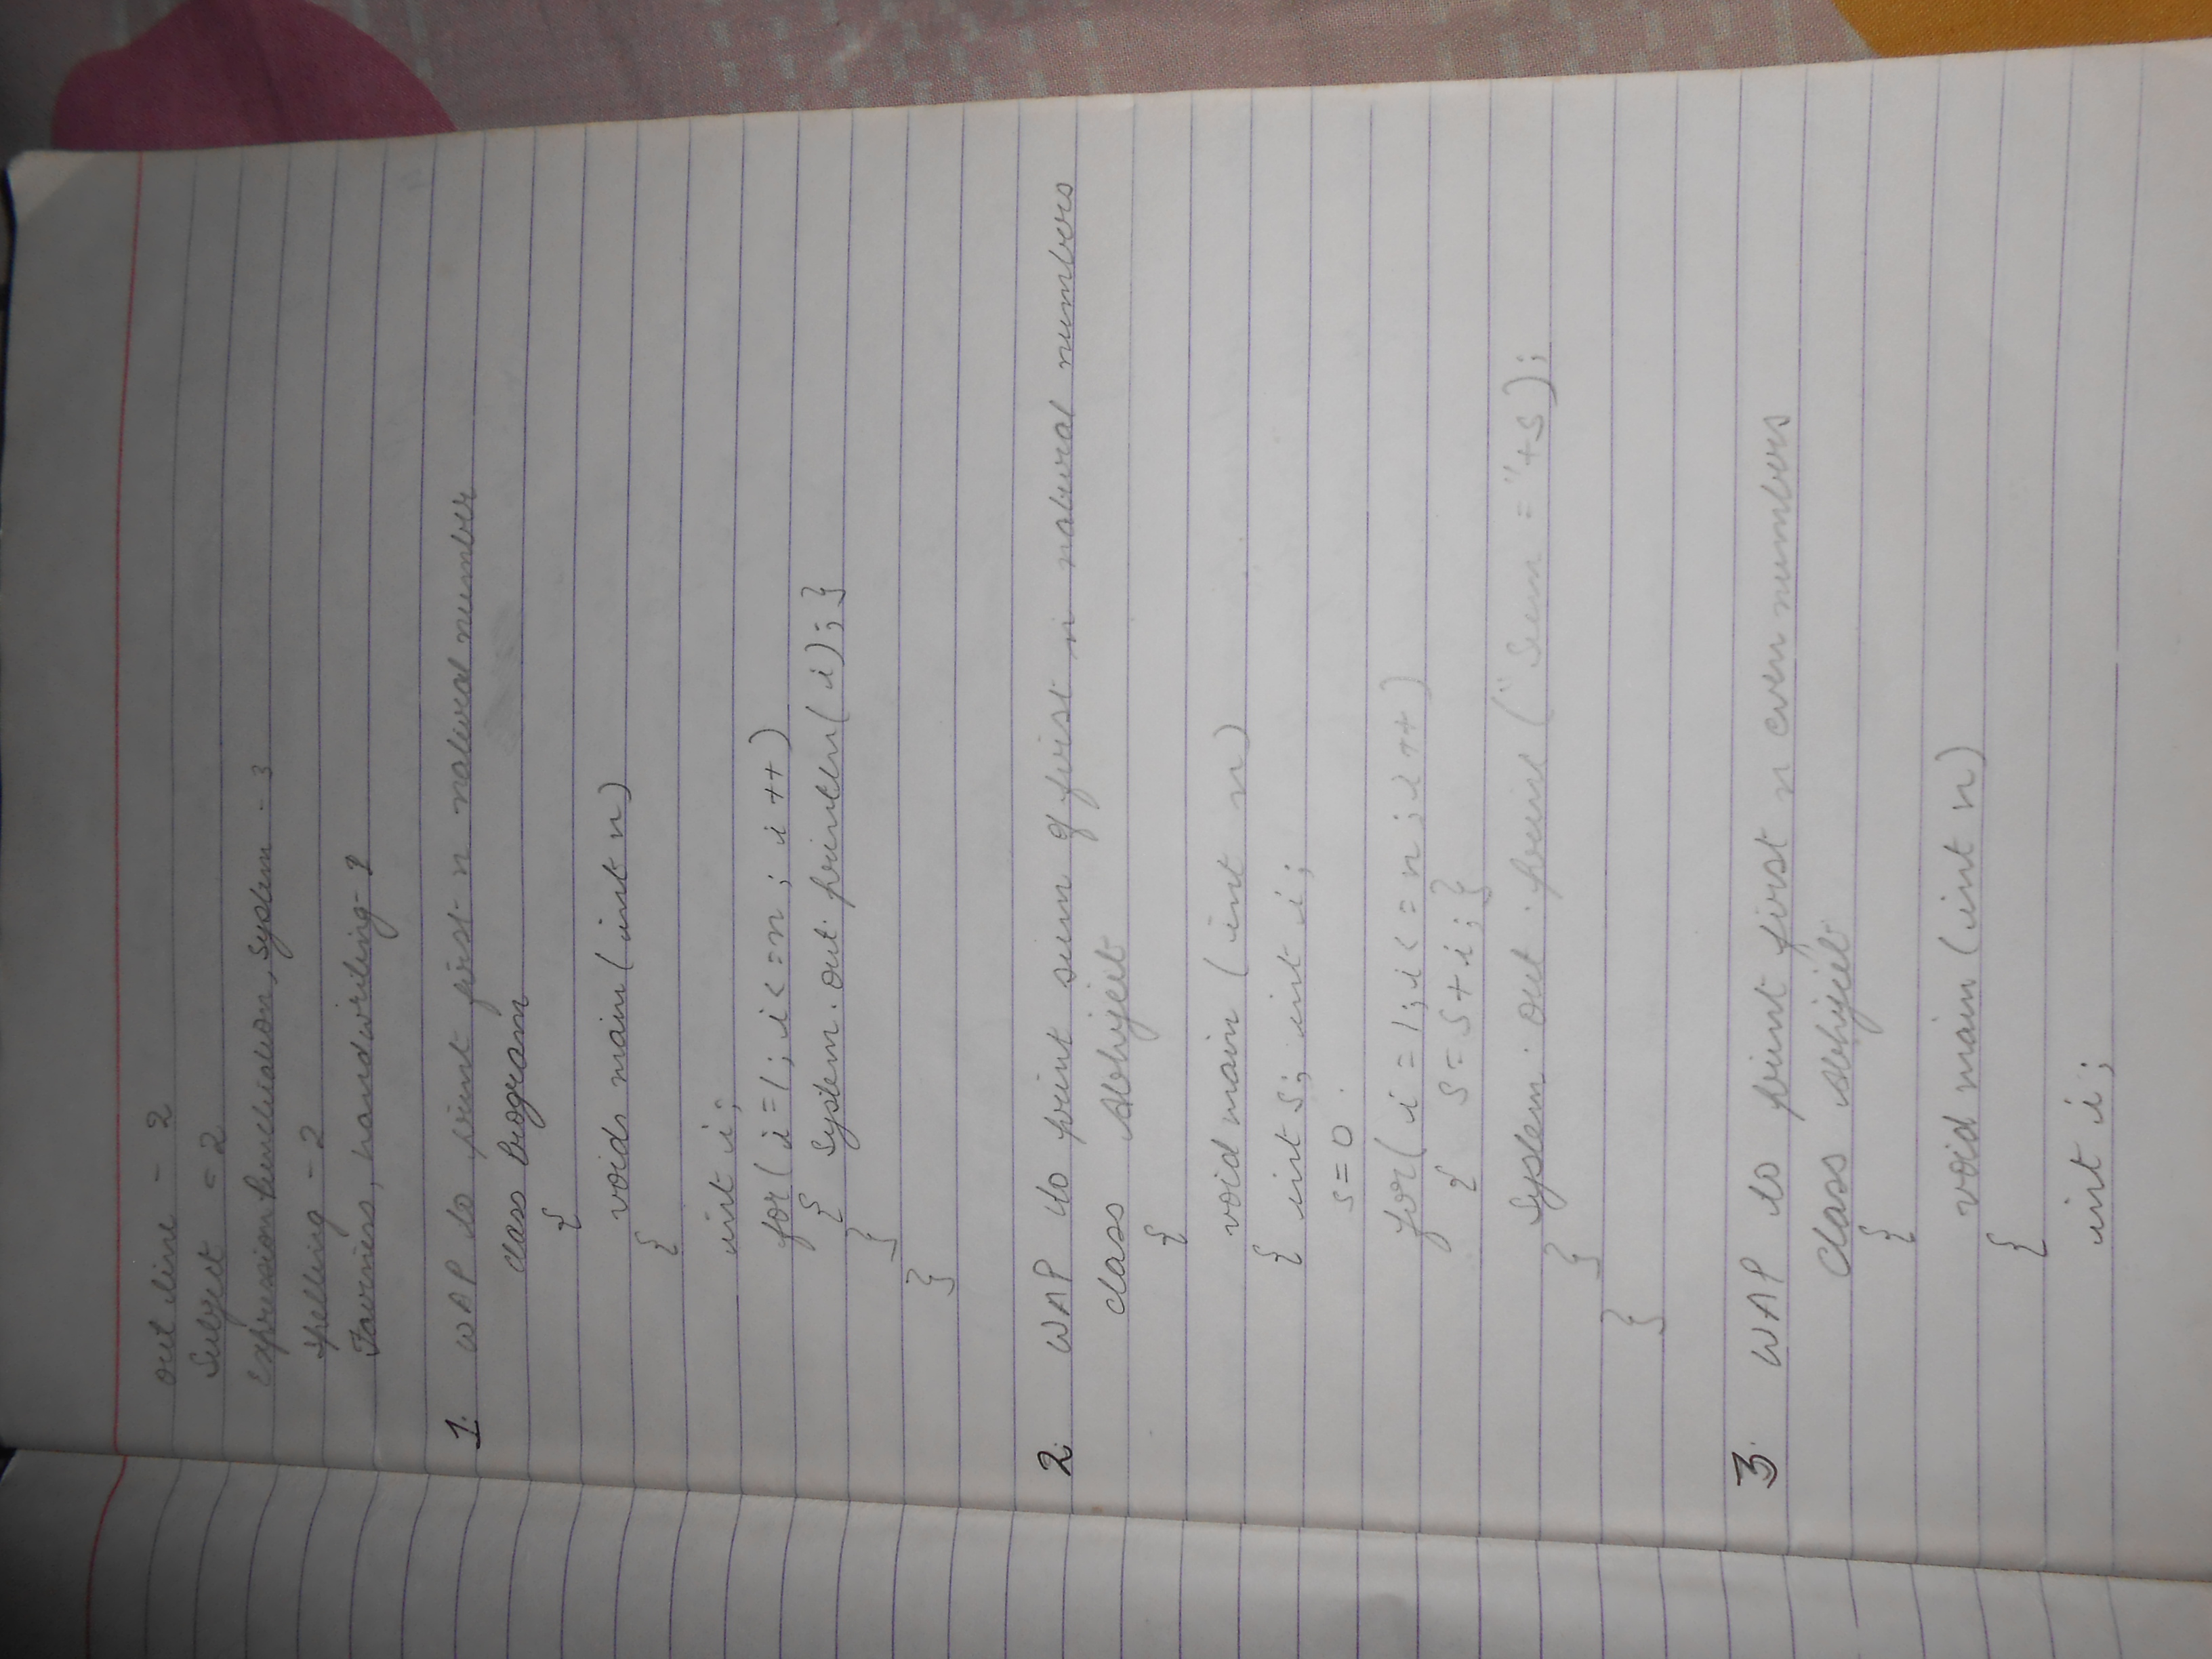 out line - 2
Subject = 2
Expression Punctuation, System - 3
Spelling - 2
Fairness, handwriting - 1
1. WAP to print first n natural number
class Program
{
void main (int n)
{
int i;
for( i=1; i<=n ; i++)
{ System.out.println( i); }
}
}
2. WAP to print sum of first n natural numbers
class Abhijeet
{
void main (int n)
{ int s; int i;
s=0
for( i = 1; i<=n; i++)
{ s= s+i; }
System.out.print ("Sum ="+s);
}
}
3. WAP to print first n even numbers
class Abhijeet
{
void main (int n)
{
int i;